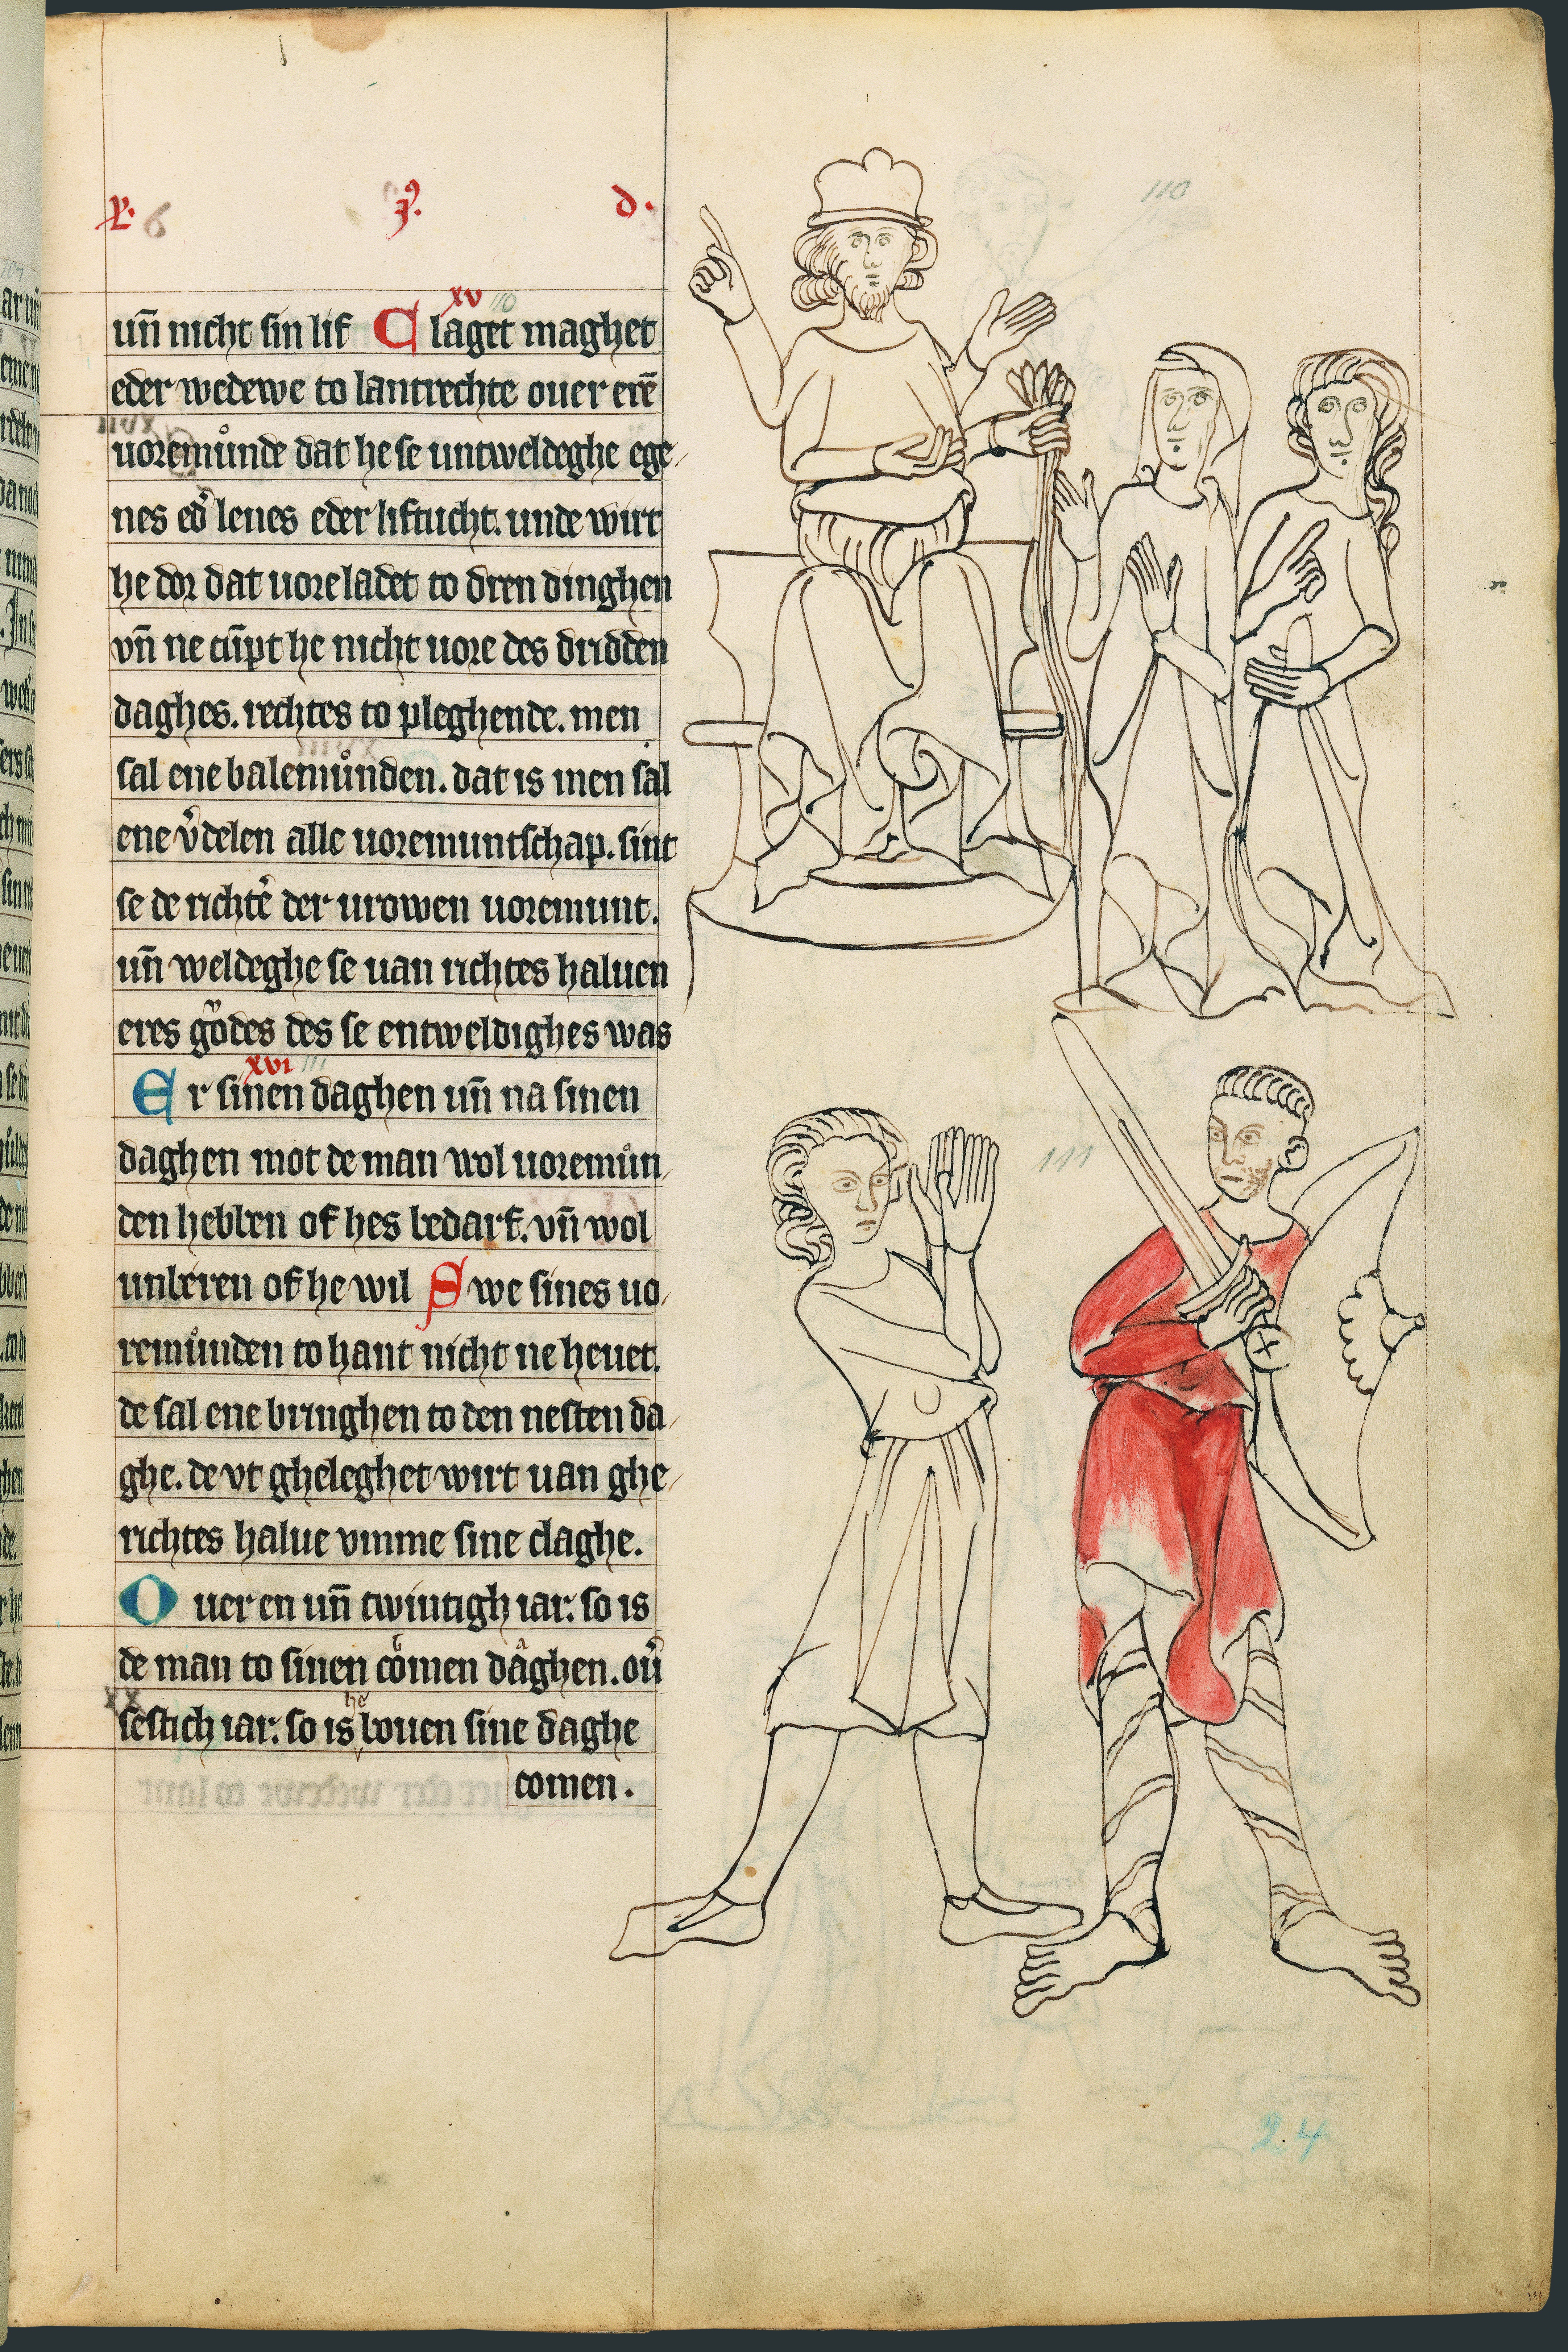 6
ꝯ.
d.
xv 110
110
uñ nicht sin lif C laget maghet
eder wedewe to lantrechte ouer erē
uoremůnde dat he se untweldeghe ege
nes edͦ lenes eder liftucht. unde wirt
he dor dat uoreladet to dren dinghen
vñ ne cūpt he nicht uore des dridden
daghes. rechtes to pleghende. men
sal ene balemůnden. dat is men sal
ene v̉delen alle uoremuntschap. sint
se de richtē der urowen uoremunt.
uñ weldeghe se uan richtes haluen
eres gůdes des se entweldighes was
xvi 111
E r sinen daghen uñ na sinen
111
daghen mot de man wol uoremůn
den hebben of hes bedarf. vñ wol
unberen of he wil S we sines uo
remůnden to hant nicht ne heuet.
de sal ene bringhen to den nesten da
ghe. de vt gheleghet wirt uan ghe
richtes halue vmme sine claghe.
O uer en uñ twintigh iar. so is
de man to sinen cͦmen dåghen. ou̓
sestich iar. so is he bouen sine daghe
comen.
24